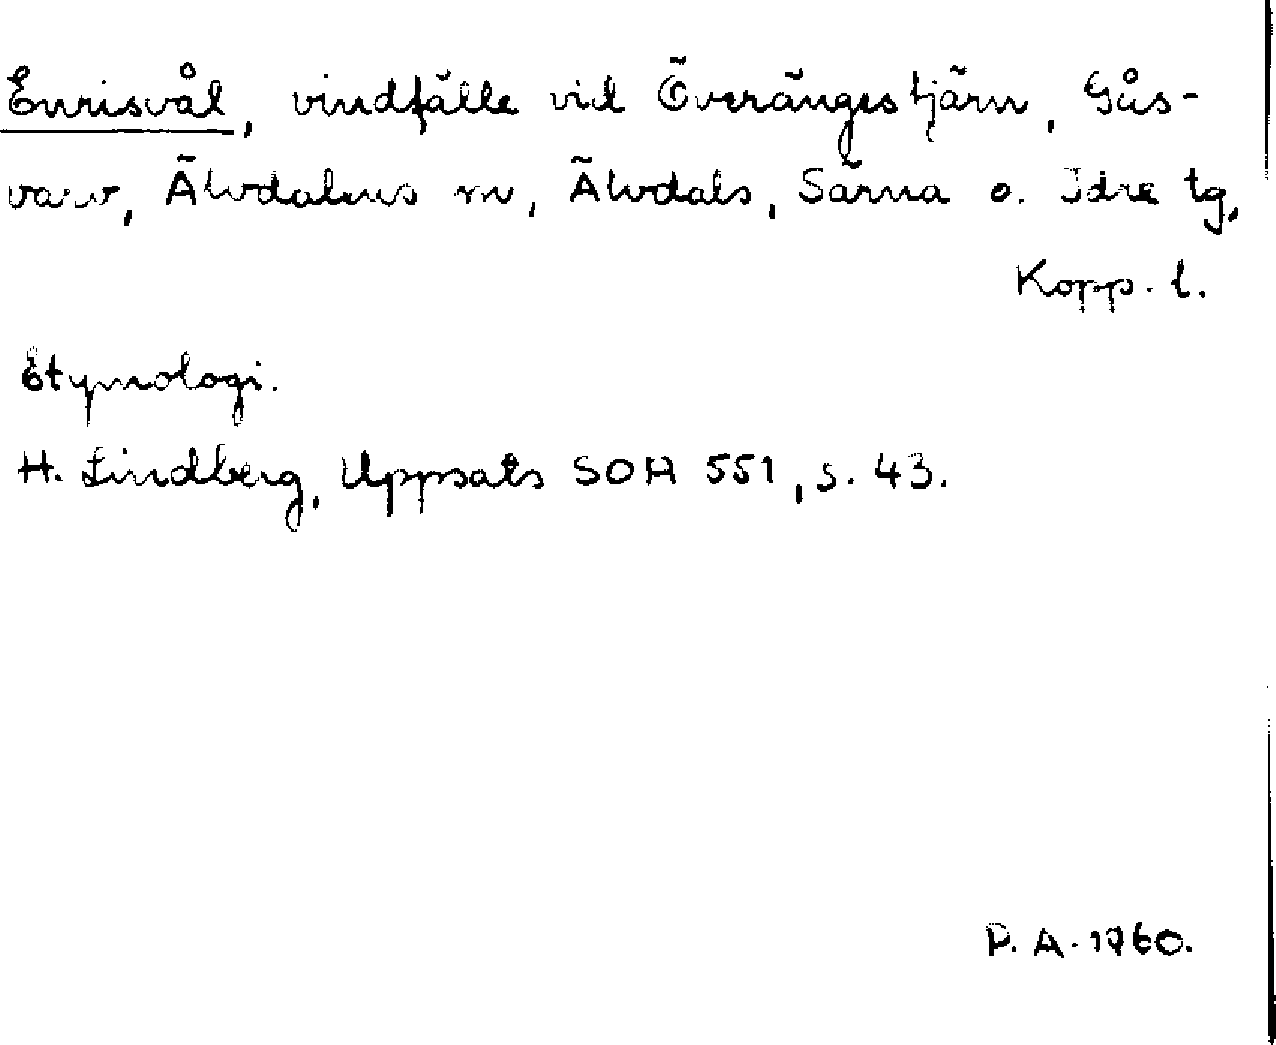 Enrisvål, vindfälle vid Överängestjärn, Gås-
varv, Älvdalens sn, Älvdals, Särna o. Idre tg,
Kopp. l.
Etymologi.
H. Lindberg, Uppsats SOH 551, s. 43.
P. A. 1960.